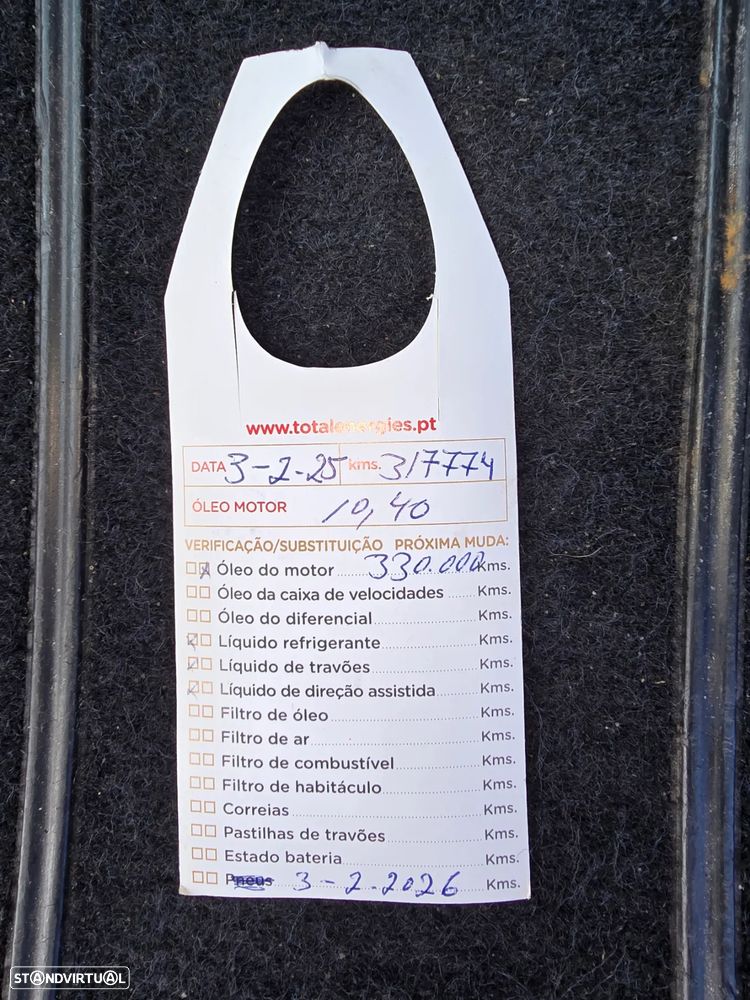 www.totalenergies.pt
DATA 3-2-25 kms. 317774
ÓLEO MOTOR 10,40
VERIFICAÇÃO/SUBSTITUIÇÃO PRÓXIMA MUDA:
Óleo do motor 330.000 Kms.
Óleo da caixa de velocidades Kms.
Óleo do diferencial Kms.
Líquido refrigerante Kms.
Líquido de travões Kms.
Líquido de direção assistida Kms.
Filtro de óleo Kms.
Filtro de ar Kms.
Filtro de combustível Kms.
Filtro de habitáculo Kms.
Correias Kms.
Pastilhas de travões Kms.
Estado bateria Kms.
Pneus 3-2-2026 Kms.
STANDVIRTUAL